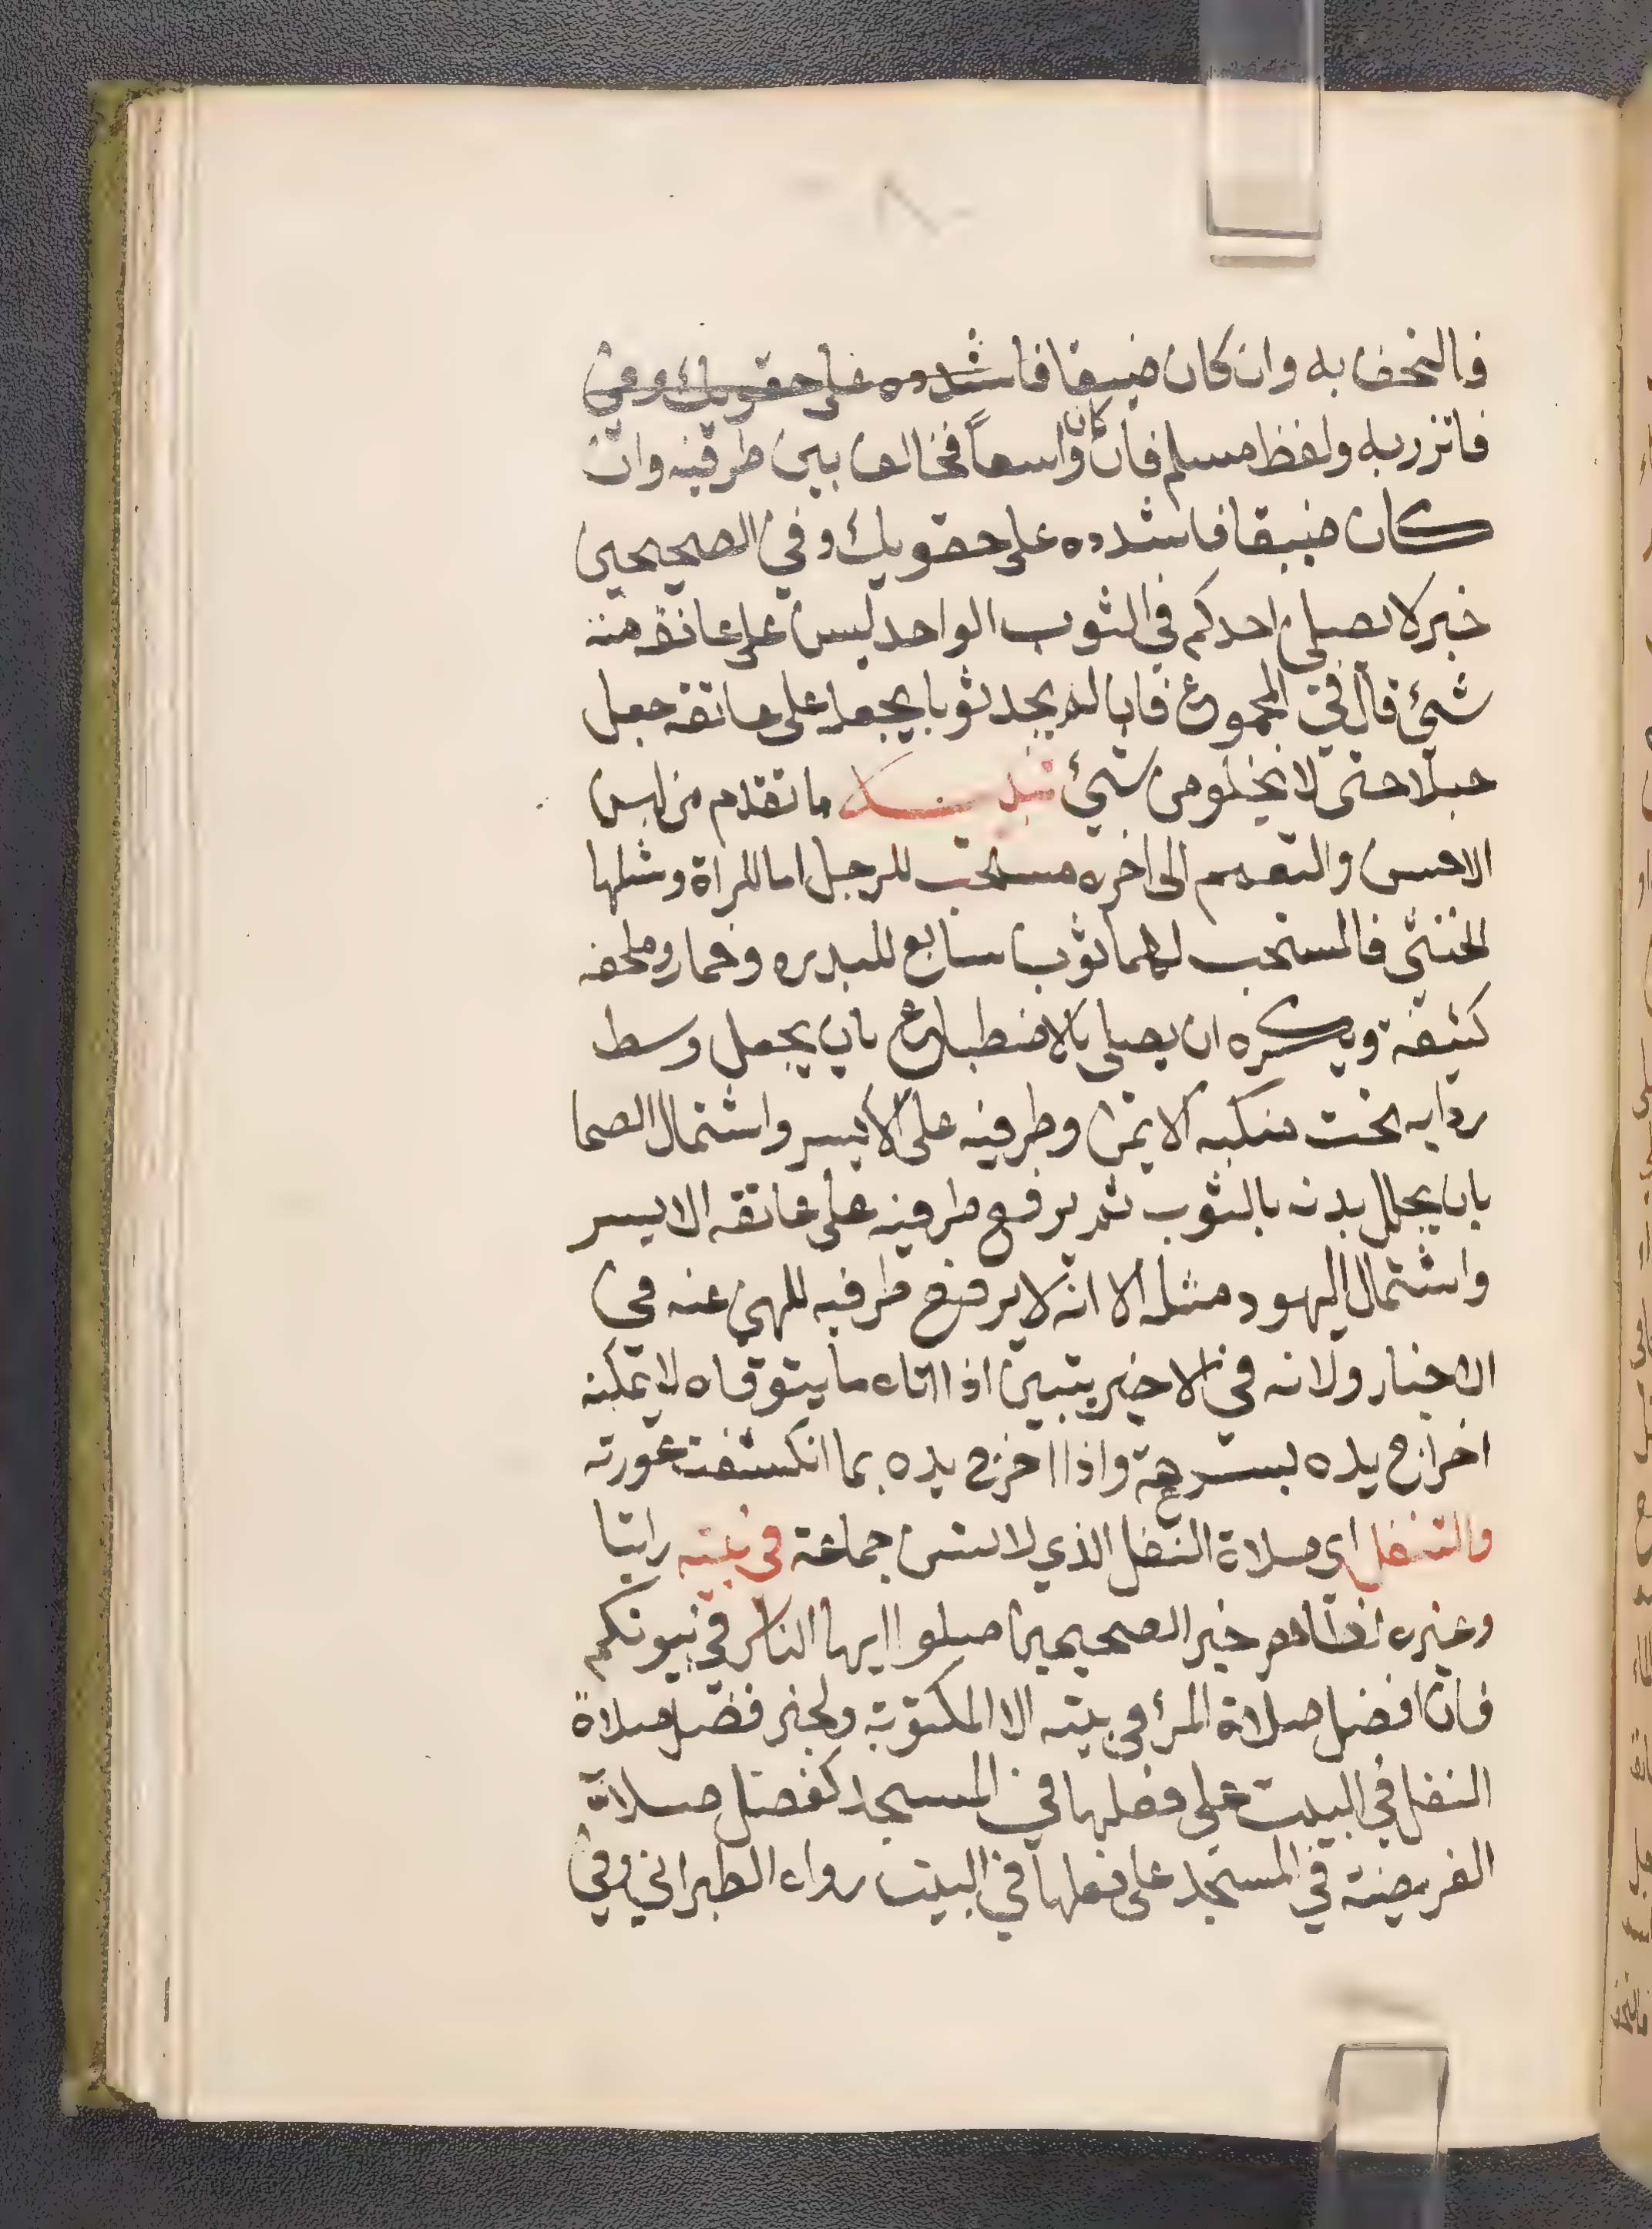 فالتحف به وان كان ضيقا فاشدده على حقويك وفي
فاتزر به ولفظ مسلم فان كان واسعاً فخالف بين طرفيه وان
كان ضيقا فاشدده على حقويك وفي الصحيحين
خبر لا يصلي احدكم في الثوب الواحد ليس على عاتقه منه
شيئ قال في المجموع فان لم يجد ثوبا يجعله على عاتقه جعل
حبلا حتى لا يخلو من شيئ تنبيه ما تقدم من لبس
الاحسن والتعمم الى اخره مستحب للرجل اما المراة ومثلها
الخنثى فالمستحب لهما ثوب سابغ للبدن وخمار وملحفه
كثيفة ويكره ان يصلى بالاضطباع بان يجعل وسط
ردايه تحت منكبه الايمن وطرفيه على الايسر واشتمال الصما
بان يجلل بدنه بالثوب ثم يرفع طرفيه على عاتقه الايسر
واشتمال اليهود مثله الا انه لا يرفع طرفيه للنهي عنه في
الاخبار ولانه في الاخيرتين اذا اتاه ما يتوقاه لا يمكنه
اخراج يده بسرعة واذا اخرج يده بما انكشفت عورته
والتنفل اي صلاة النفل الذي لا تسن جماعة في بيته راتبا
وغيره لظاهر خبر الصحيحين صلوا ايها الناس في بيوتكم
فان افضل صلاة المرئ في بيته الا المكتوبة ولخبر فضل صلاة
النفل في البيت على فعلها في المسجد كفضل صلاة
الفريضة في المسجد على فعلها في البيت رواه الطبراني وفي